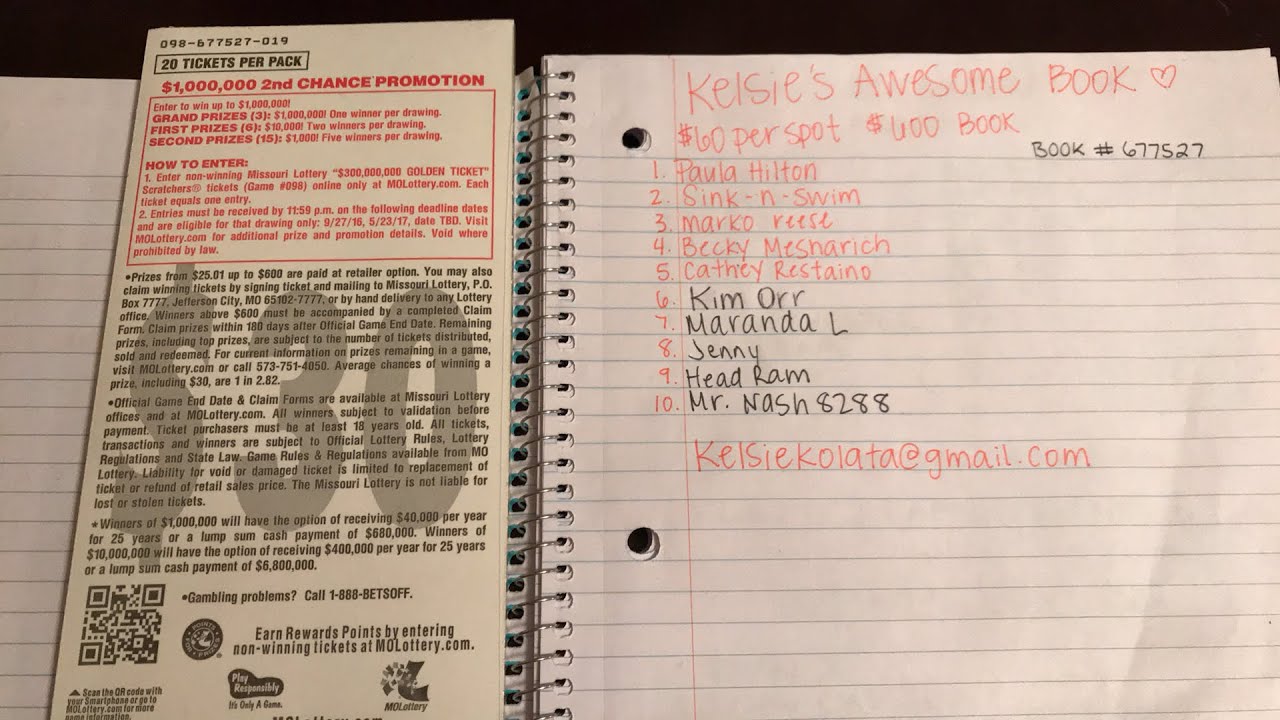 098-677527-019
20 TICKETS PER PACK
$1,000,000 2nd CHANCE PROMOTION
Enter to win up to $1,000,000!
GRAND PRIZES (3): $1,000,000! One winner per drawing.
FIRST PRIZES (6): $10,000! Two winners per drawing.
SECOND PRIZES (15): $1,000! Five winners per drawing.
HOW TO ENTER:
1. Enter non-winning Missouri Lottery "$300,000,000 GOLDEN TICKET"
Scratchers® tickets (Game #098) online only at MOLottery.com. Each
ticket equals one entry.
2. Entries must be received by 11:59 p.m. on the following deadline dates
and are eligible for that drawing only: 9/27/16, 5/23/17, date TBD. Visit
MOLottery.com for additional prize and promotion details. Void where
prohibited by law.
•Prizes from $25.01 up to $600 are paid at retailer option. You may also
claim winning tickets by signing ticket and mailing to Missouri Lottery, P.O.
Box 7777, Jefferson City, MO 65102-7777, or by hand delivery to any Lottery
office. Winners above $600 must be accompanied by a completed Claim
Form. Claim prizes within 180 days after Official Game End Date. Remaining
prizes, including top prizes, are subject to the number of tickets distributed,
sold and redeemed. For current information on prizes remaining in a game,
visit MOLottery.com or call 573-751-4050. Average chances of winning a
prize, including $30, are 1 in 2.82.
•Official Game End Date & Claim Forms are available at Missouri Lottery
offices and at MOLottery.com. All winners subject to validation before
payment. Ticket purchasers must be at least 18 years old. All tickets,
transactions and winners are subject to Official Lottery Rules, Lottery
Regulations and State Law. Game Rules & Regulations available from MO
Lottery. Liability for void or damaged ticket is limited to replacement of
ticket or refund of retail sales price. The Missouri Lottery is not liable for
lost or stolen tickets.
$30
★Winners of $1,000,000 will have the option of receiving $40,000 per year
for 25 years or a lump sum cash payment of $680,000. Winners of
$10,000,000 will have the option of receiving $400,000 per year for 25 years
or a lump sum cash payment of $6,800,000.
•Gambling problems? Call 1-888-BETSOFF.
POINTS FOR PRIZES
Earn Rewards Points by entering
non-winning tickets at MOLottery.com.
▲ Scan the QR code with
your Smartphone or go to
MOLottery.com for more
game information.
Play
Responsibly
It's Only A Game.
MOLottery
MOLottery.com
Kelsie's Awesome Book ♡
$60 per spot $600 Book
BOOK # 677527
1. Paula Hilton
2. Sink-n-Swim
3. marko reese
4. Becky Mesharich
5. Cathey Restaino
6. Kim Orr
7. Maranda L
8. Jenny
9. Head Ram
10. Mr. Nash 8288
Kelsiekolata@gmail.com